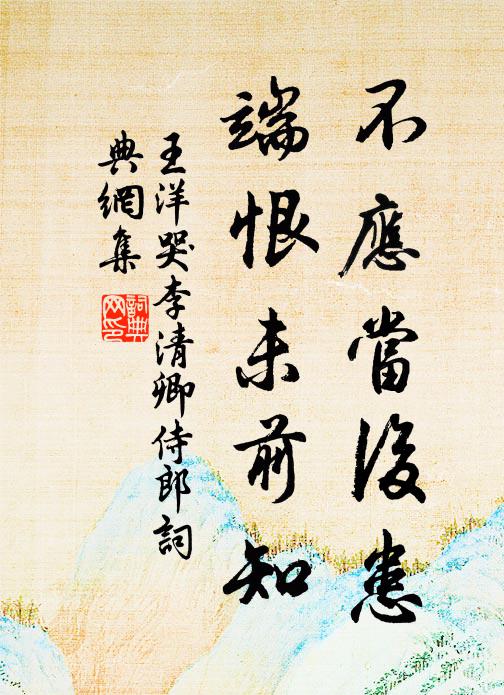 不應當後患
端恨未前知
王洋哭李清卿侍郎詞
典網集
詞典
网印